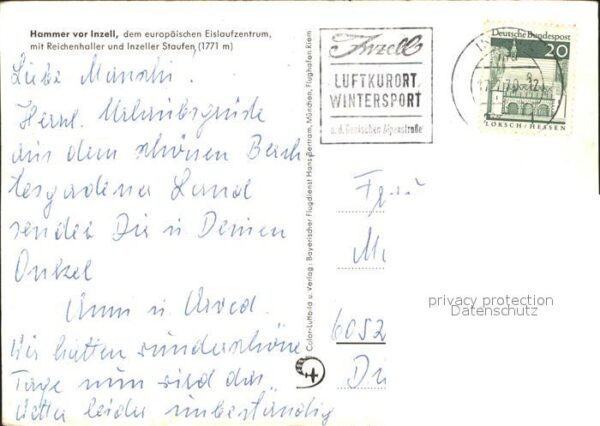 Hammer vor Inzell, dem europäischen Eislaufzentrum,
mit Reichenhaller und Inzeller Staufen (1771 m)
Liebe Manschi!
Herzl. Urlaubsgrüße
aus dem schönen Berch
tesgadener Land
sendet Dir u Deinen
Onkel
Anni u. Arved.
Wir hatten wunderschöne
Tage nun wird das
Wetter leider unbeständig
Color-Luftbild u. Verlag: Bayerischer Flugdienst Hans Bertram, München, Flughafen Riem
Inzell
LUFTKURORT
WINTERSPORT
a.d. Deutschen Alpenstraße
Deutsche Bundespost
20
LORSCH / HESSEN
6052
privacy protection
Datenschutz